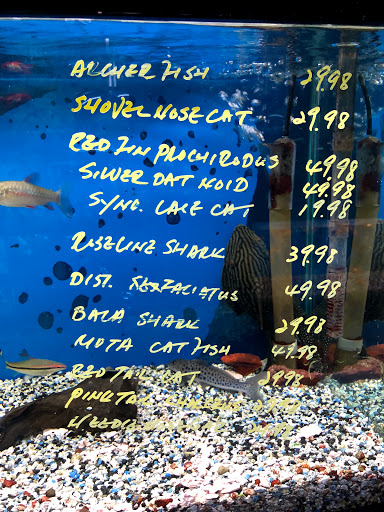 ARCHER FISH 29.98
SHOVEL NOSE CAT 29.98
RED FIN PROCHIRODUS 49.98
SILVER DAT NOID 49.98
SYNO. LACE CAT 19.98
ROSELINE SHARK 39.98
DIST. 49.98
BALA SHARK 29.98
MOTA CATFISH 49.98
RED TAIL CAT 29.98